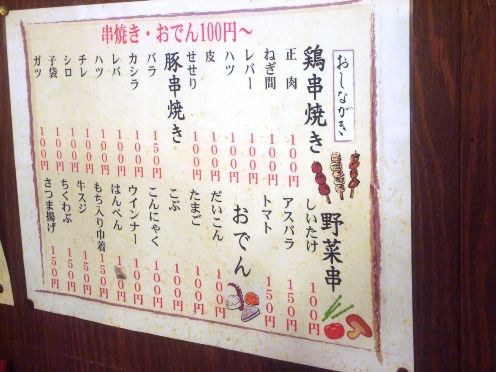 串焼き・おでん100円～
おしながき
鶏串焼き
正肉 100円
ねぎ間 100円
レバー 100円
ハツ 100円
皮 100円
せせり 100円
豚串焼き
バラ 150円
カシラ 100円
レバ 100円
ハツ 100円
チレ 100円
シロ 100円
子袋 100円
ガツ 100円
野菜串
しいたけ 100円
アスパラ 150円
トマト 150円
おでん
だいこん 100円
たまご 100円
こぶ 100円
こんにゃく 100円
ウインナー 100円
はんぺん 100円
もち入り巾着 150円
牛スジ
ちくわぶ
さつま揚げ 150円